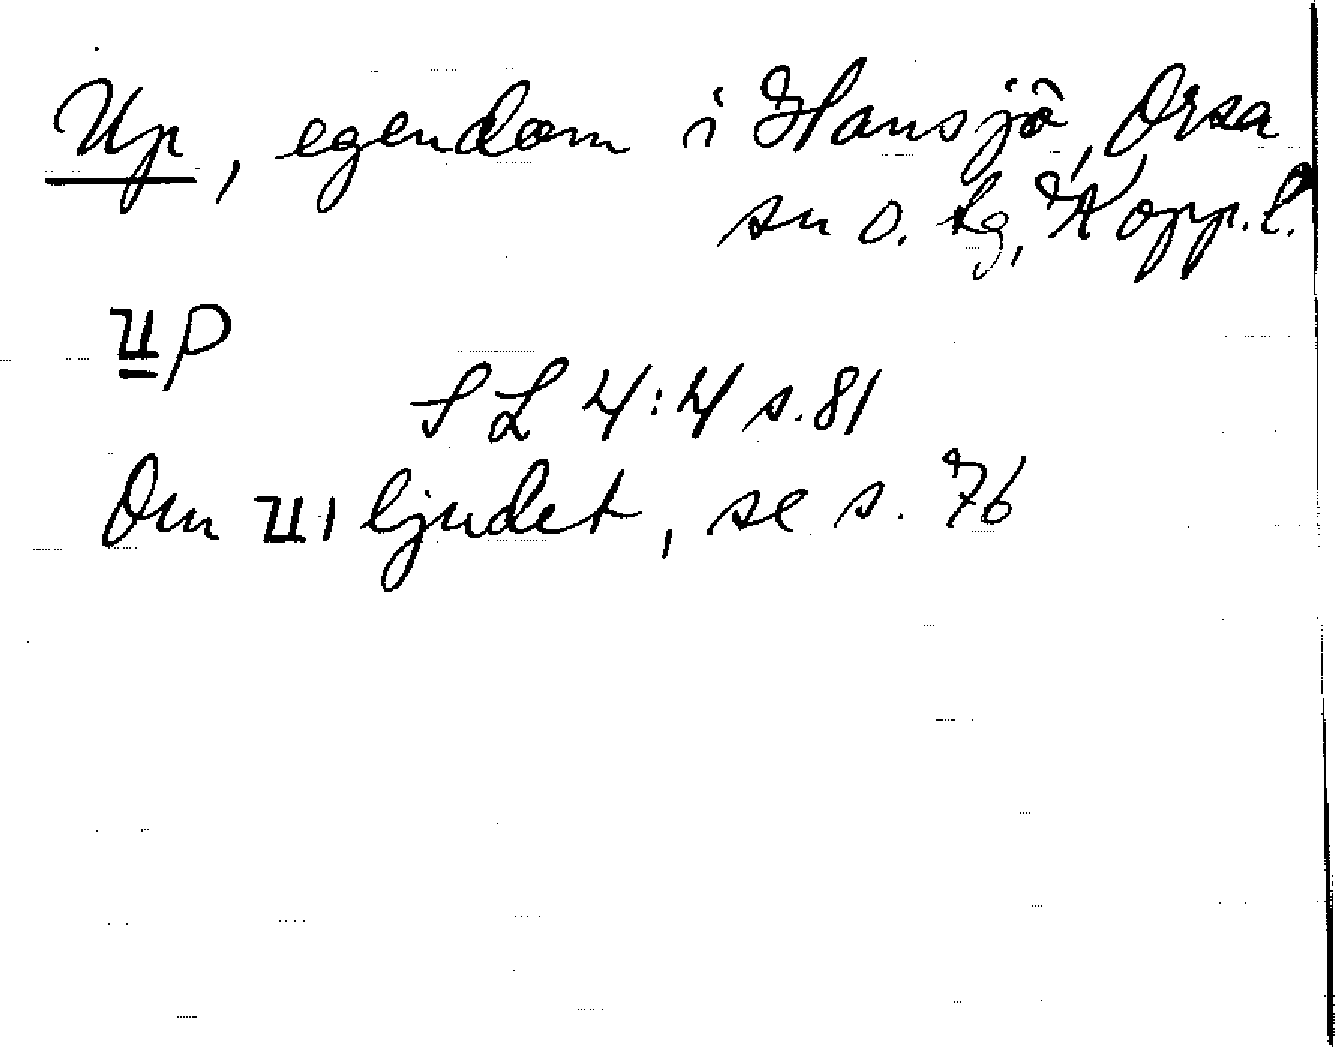 Up, egendom i Hansjö, Orsa
sn o. tg, Kopp. l.
up
SL 4:4 s. 81
Om u, ljudet, se s. 76